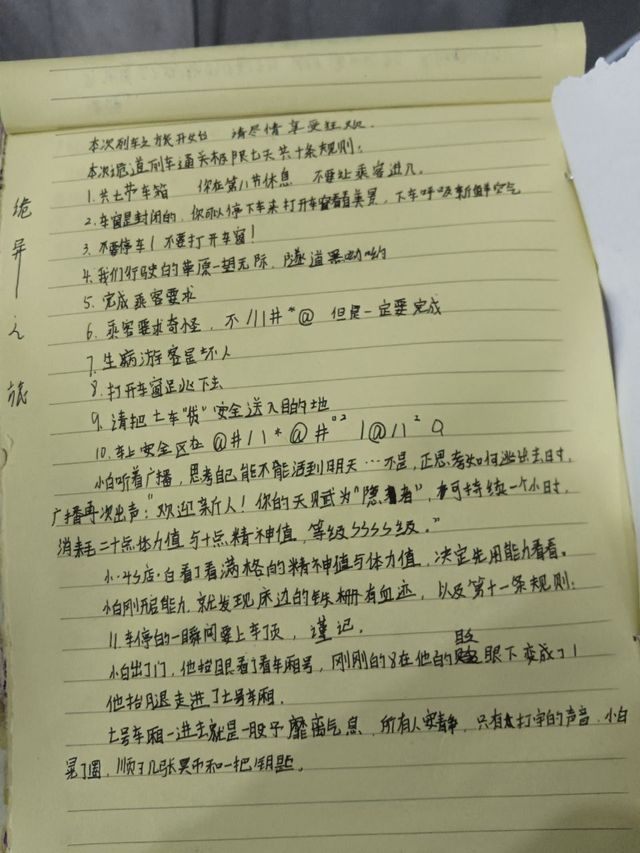 诡异之旅
本次列车之旅开始 请尽情享受狂欢.
本次隧道列车通关极限七天共十条规则:
1.共七节车箱 你在第八节休息 不要让乘客进入.
2.车窗是封闭的,你可以停下车来打开车窗看看美景,下车呼吸新鲜空气
3.不要停车!不要打开车窗!
4.我们行驶的草原一望无际,隧道黑呦呦
5.完成乘客要求
6.乘客要求奇怪,不/||#*@ 但是一定要完成
7.生病游客是坏人
8.打开车窗逃下去
9.请把七车"货"安全送入目的地
10.车上安全区在@#/\*@#°² |@/1² Q
小白听着广播,思考自己能不能活到明天…不是,正思考如何逃出去时,
广播再次出声:"欢迎新人!你的天赋为"隐者",可持续一个小时,
消耗二十点体力值与十点精神值,等级SSSS级。"
小·4S店·白看了看满格的精神值与体力值,决定先用能力看看。
小白刚开启能力,就发现床边的铁栅有血迹,以及第十一条规则:
11.车停的一瞬间要上车顶,谨记.
小白出了门,他抬眼看了看车厢号,刚刚的8在他的眼眼下变成了1
他抬腿走进了七号车厢.
七号车厢一进去就是一股子靡离气息,所有人安静,只有打字的声音,小白
晃了圈,顺了几张冥币和一把钥匙.